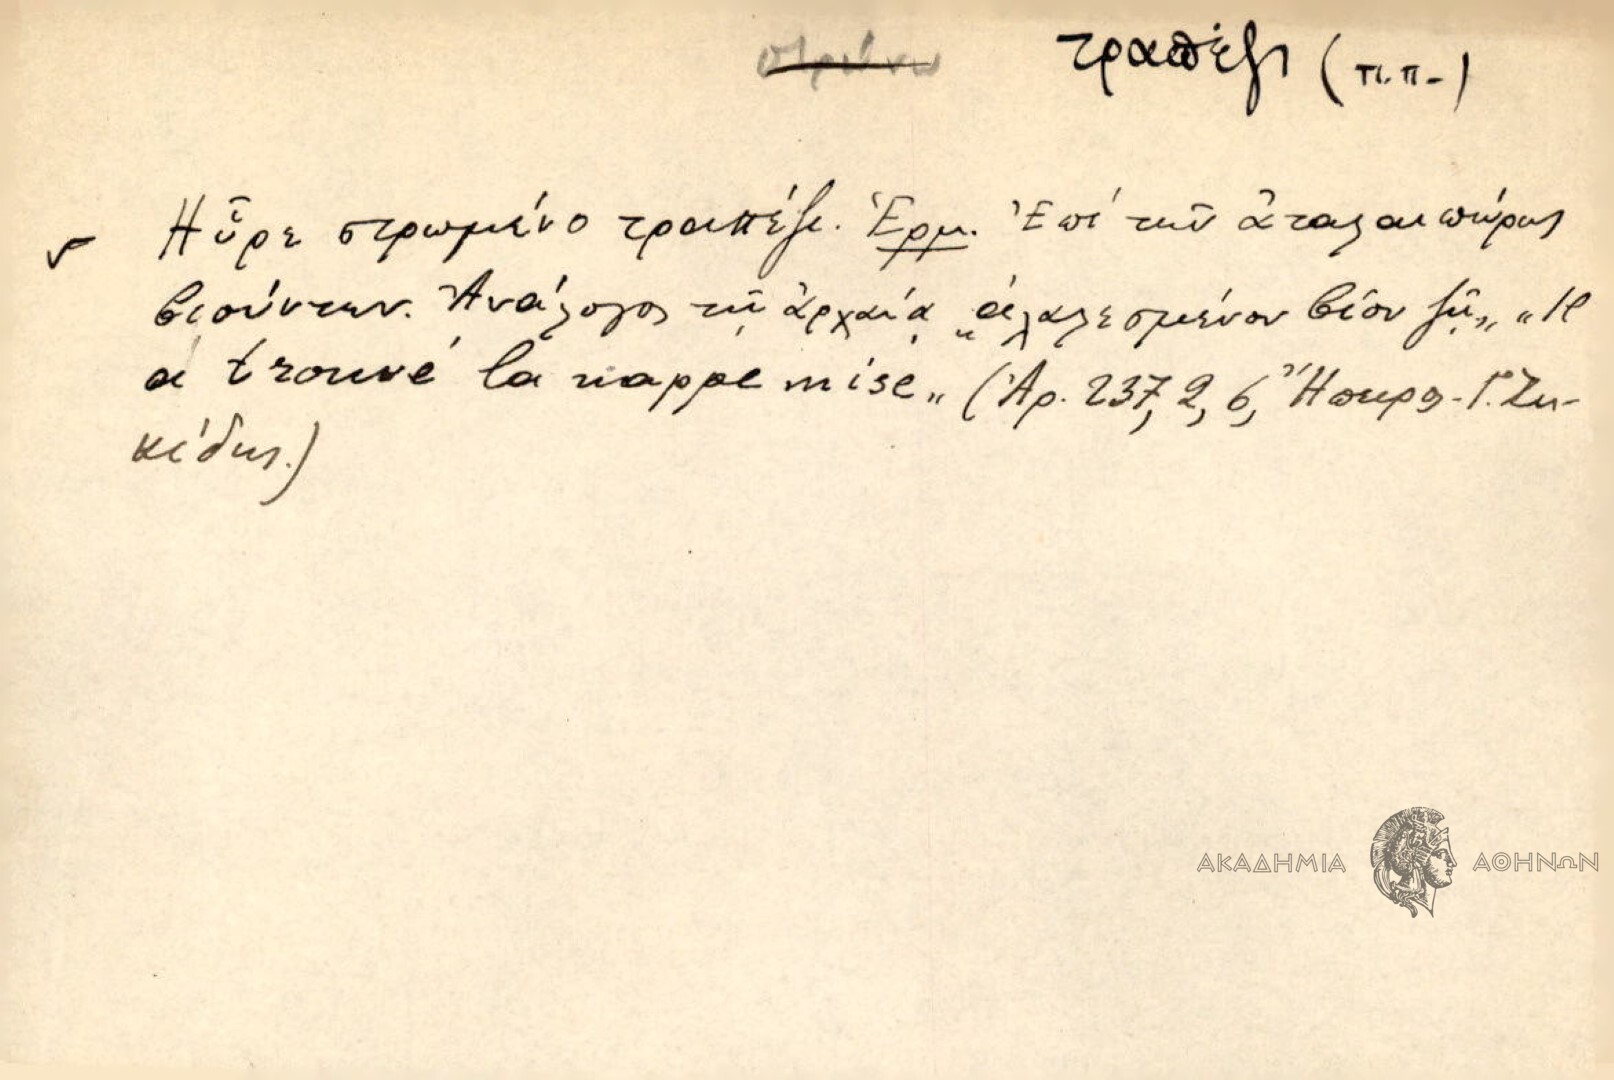 στρώνω τραπέζι (π.π.)
Ηὗρε στρωμένο τραπέζι. Ἑρμ. Ἐπὶ τῶν ἀταλαιπώρως
βιούντων. Ἀνάλογος τῇ ἀρχαίᾳ „ἀληλεσμένον βίον ζῇ„ „Il
a trouvé la nappe mise„ (Ἀρ. 237, 2, 6, Ἤπειρος - Γ. Ζη-
κίδης.)
ΑΚΑΔΗΜΙΑ ΑΘΗΝΩΝ